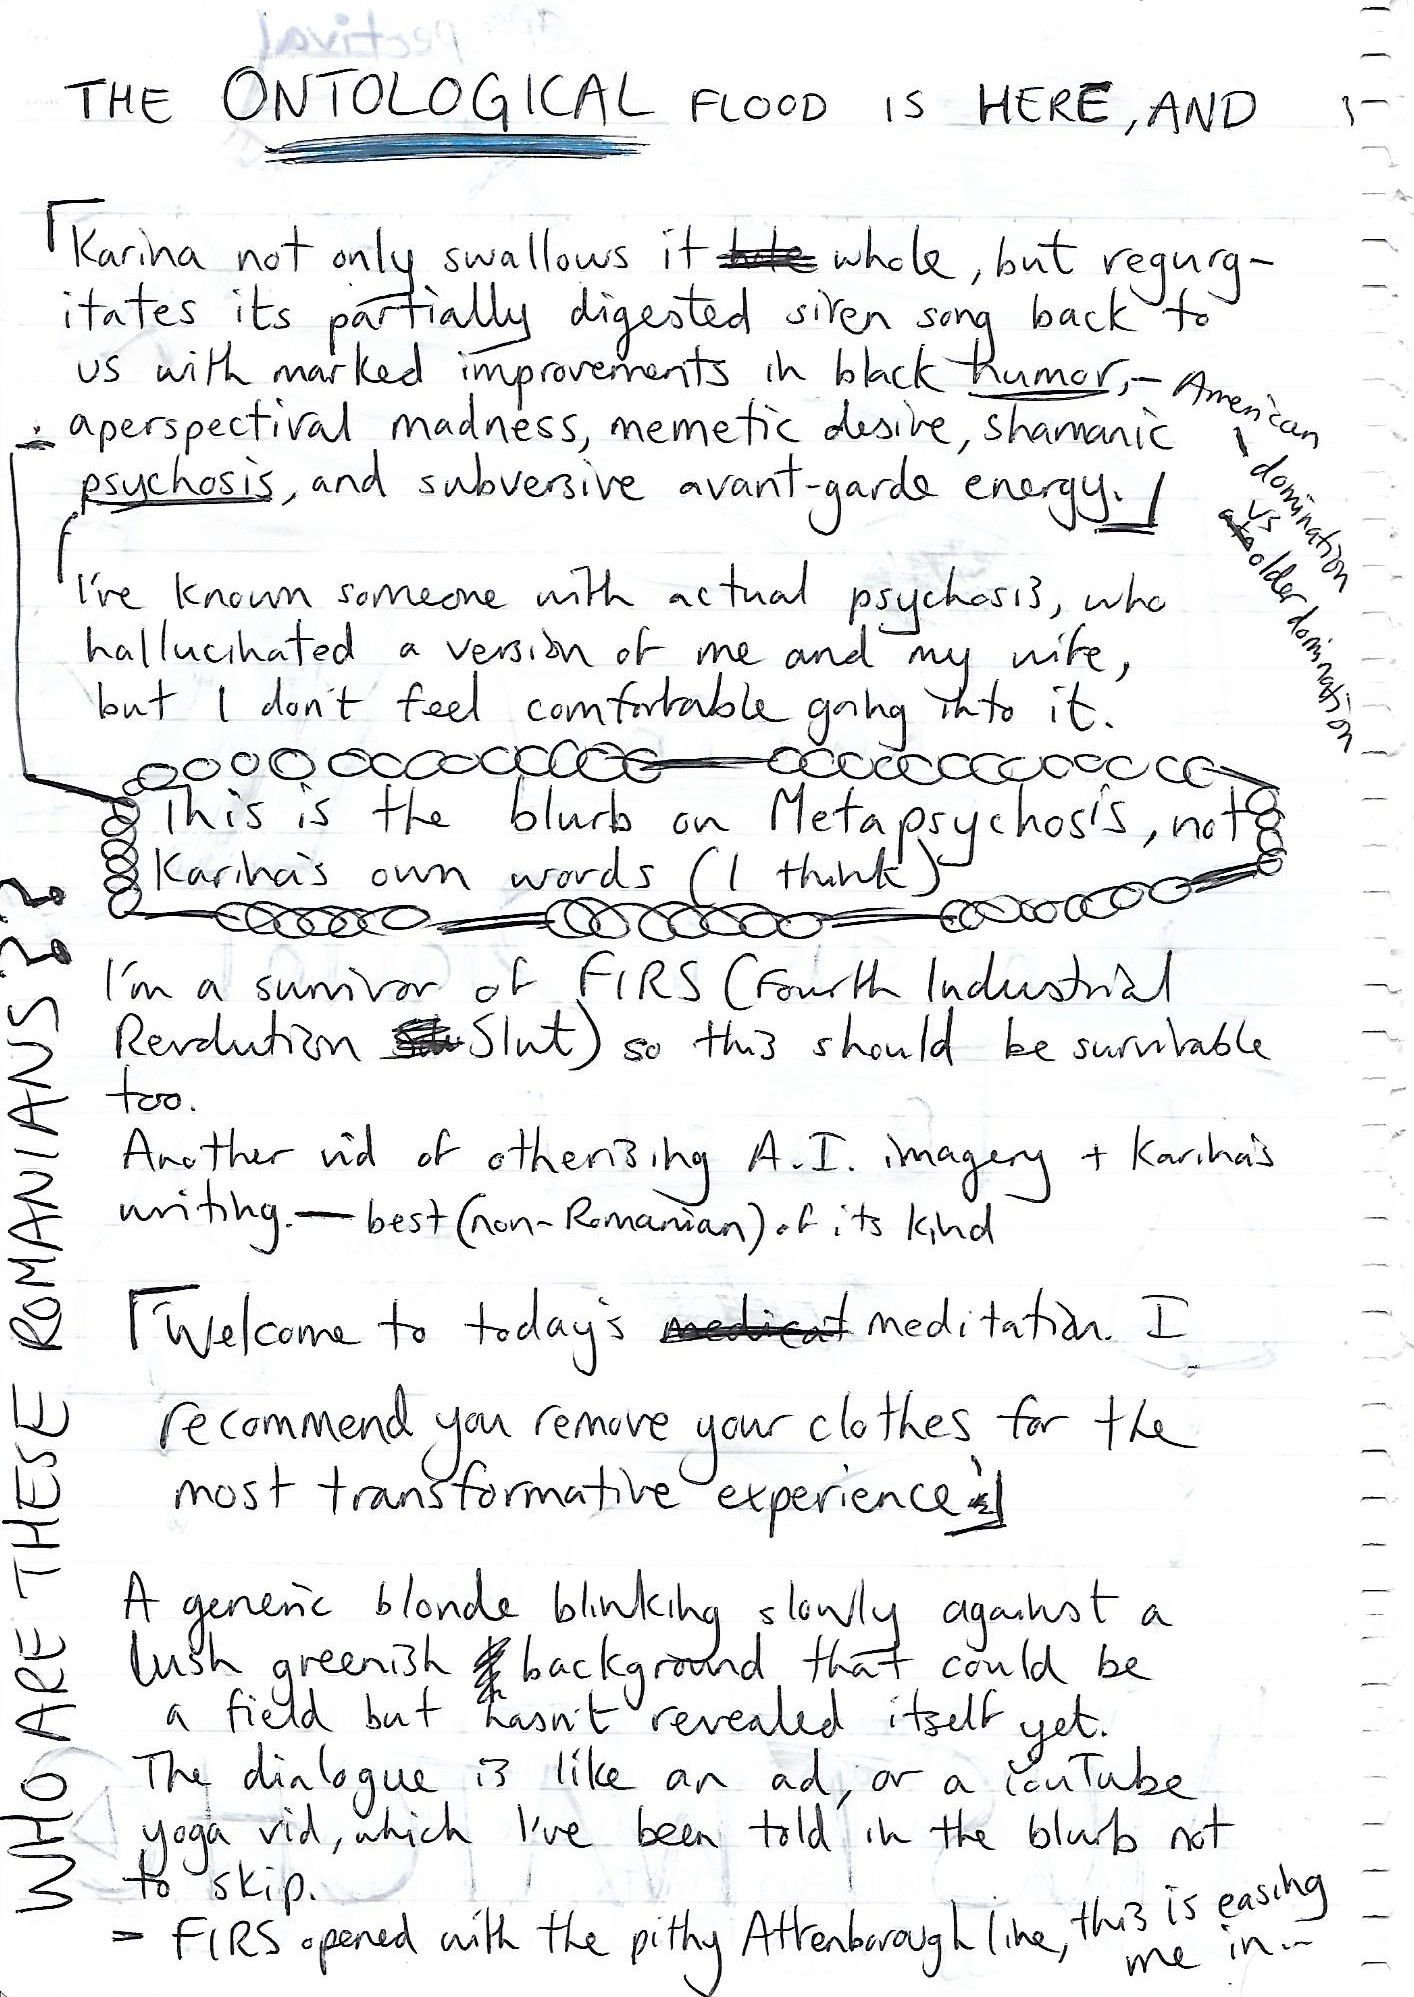 THE ONTOLOGICAL FLOOD IS HERE, AND
「Karina not only swallows it whole, but regurg-
itates its partially digested siren song back to
us with marked improvements in black humor, –
aperspectival madness, memetic desire, shamanic
psychosis, and subversive avant-garde energy.」
American
domination
vs
older domination
I've known someone with actual psychosis, who
hallucinated a version of me and my wife,
but I don't feel comfortable going into it.
This is the blurb on Metapsychosis, not
Karina's own words (I think)
I'm a survivor of FIRS (Fourth Industrial
Revolution Slut) so this should be survivable
too.
Another vid of otherising A.I. imagery + Karina's
writing. — best (non-Romanian) of its kind
「Welcome to today's medicat meditation. I
recommend you remove your clothes for the
most transformative experience.」
A generic blonde blinking slowly against a
lush greenish background that could be
a field but hasn't revealed itself yet.
The dialogue is like an ad, or a YouTube
yoga vid, which I've been told in the blurb not
to skip.
= FIRS opened with the pithy Attenborough line, this is easing
me in --
WHO ARE THESE ROMANIANS??